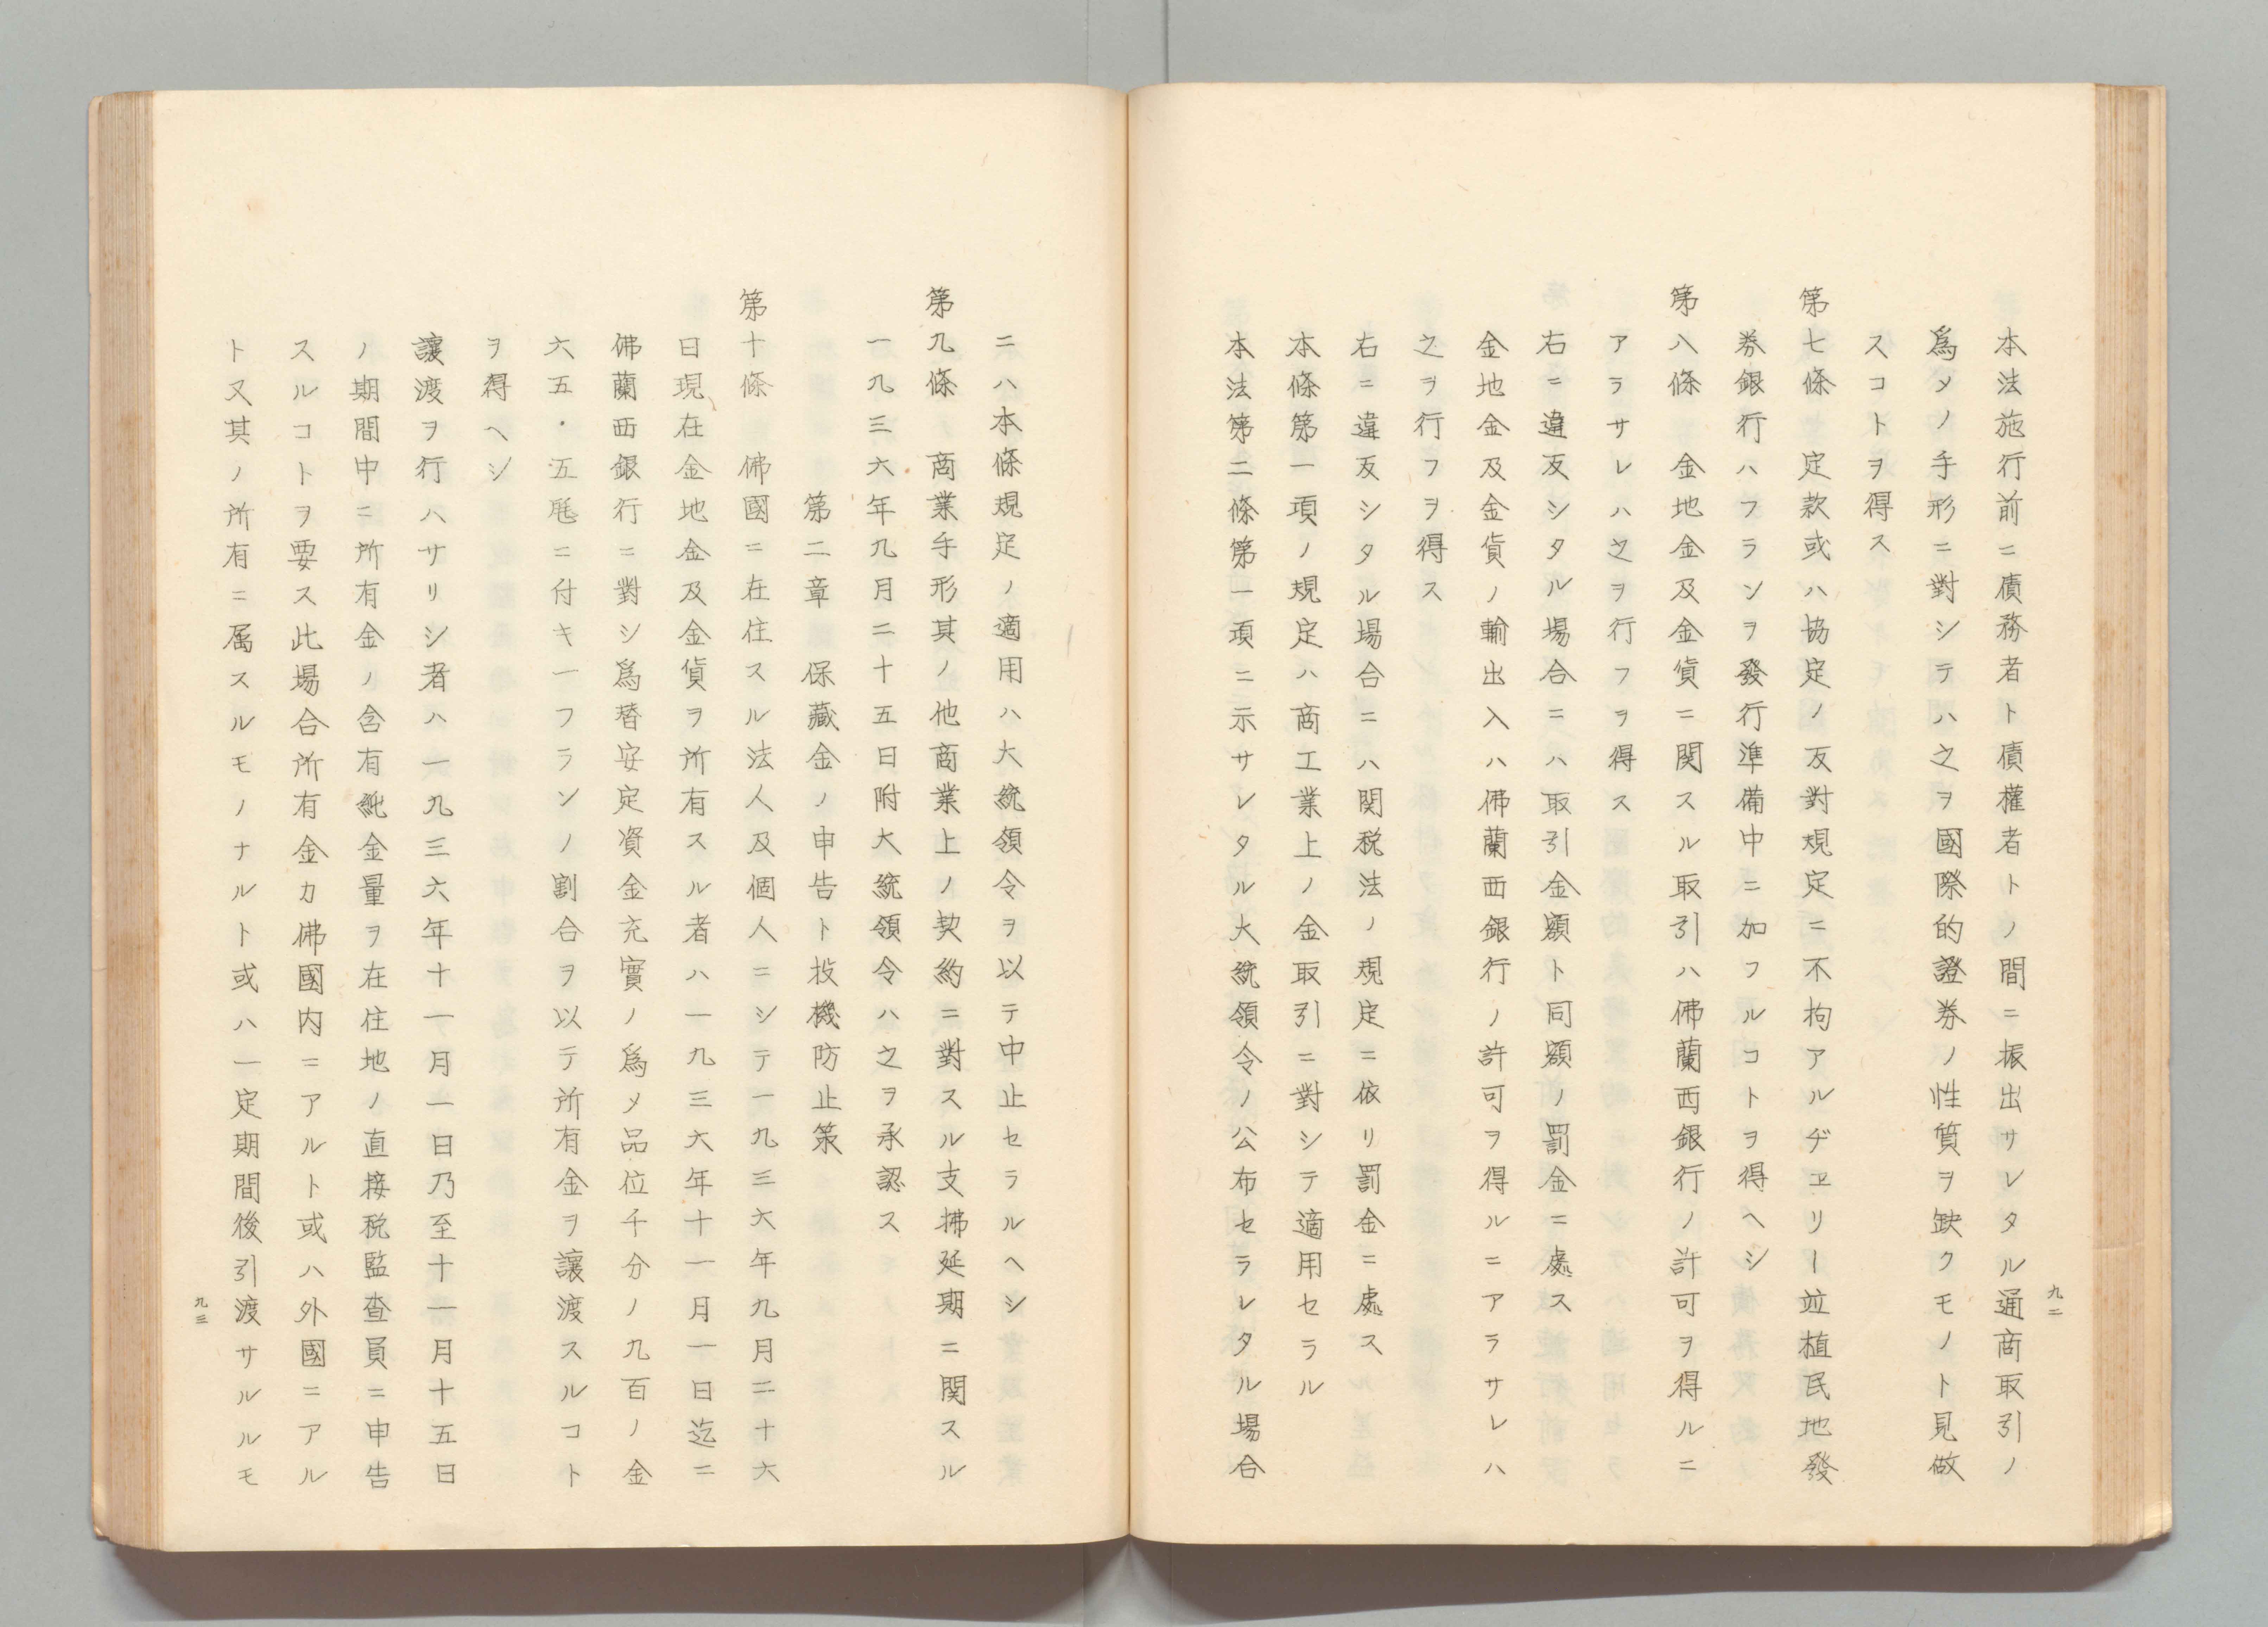 本法施行前ニ債務者ト債權者トノ間ニ振出サレタル通商取引ノ
爲メノ手形ニ對シテハ之ヲ國際的證券ノ性質ヲ缺クモノト見做
スコトヲ得ス
第七條　定款或ハ協定ノ反對規定ニ不拘アルヂヱリー並植民地發
券銀行ハフランヲ發行準備中ニ加フルコトヲ得ヘシ
第八條　金地金及金貨ニ関スル取引ハ佛蘭西銀行ノ許可ヲ得ルニ
アラサレハ之ヲ行フヲ得ス
右ニ違反シタル場合ニハ取引金額ト同額ノ罰金ニ處ス
金地金及金貨ノ輸出入ハ佛蘭西銀行ノ許可ヲ得ルニアラサレハ
之ヲ行フヲ得ス
右ニ違反シタル場合ニハ関税法ノ規定ニ依リ罰金ニ處ス
本條第一項ノ規定ハ商工業上ノ金取引ニ對シテ適用セラル
本法第二條第一項ニ示サレタル大統領令ノ公布セラレタル場合
九二
ニハ本條規定ノ適用ハ大統領令ヲ以テ中止セラルヘシ
第九條　商業手形其ノ他商業上ノ契約ニ對スル支拂延期ニ関スル
一九三六年九月二十五日附大統領令ハ之ヲ承認ス
第二章　保藏金ノ申告ト投機防止策
第十條　佛國ニ在住スル法人及個人ニシテ一九三六年九月二十六
日現在金地金及金貨ヲ所有スル者ハ一九三六年十一月一日迄ニ
佛蘭西銀行ニ對シ爲替安定資金充實ノ爲メ品位千分ノ九百ノ金
六五・五瓱ニ付キ一フランノ割合ヲ以テ所有金ヲ讓渡スルコト
ヲ得ヘシ
讓渡ヲ行ハサリシ者ハ一九三六年十一月一日乃至十一月十五日
ノ期間中ニ所有金ノ含有純金量ヲ在住地ノ直接税監査員ニ申告
スルコトヲ要ス此場合所有金カ佛國内ニアルト或ハ外國ニアル
ト又其ノ所有ニ属スルモノナルト或ハ一定期間後引渡サルルモ
九三